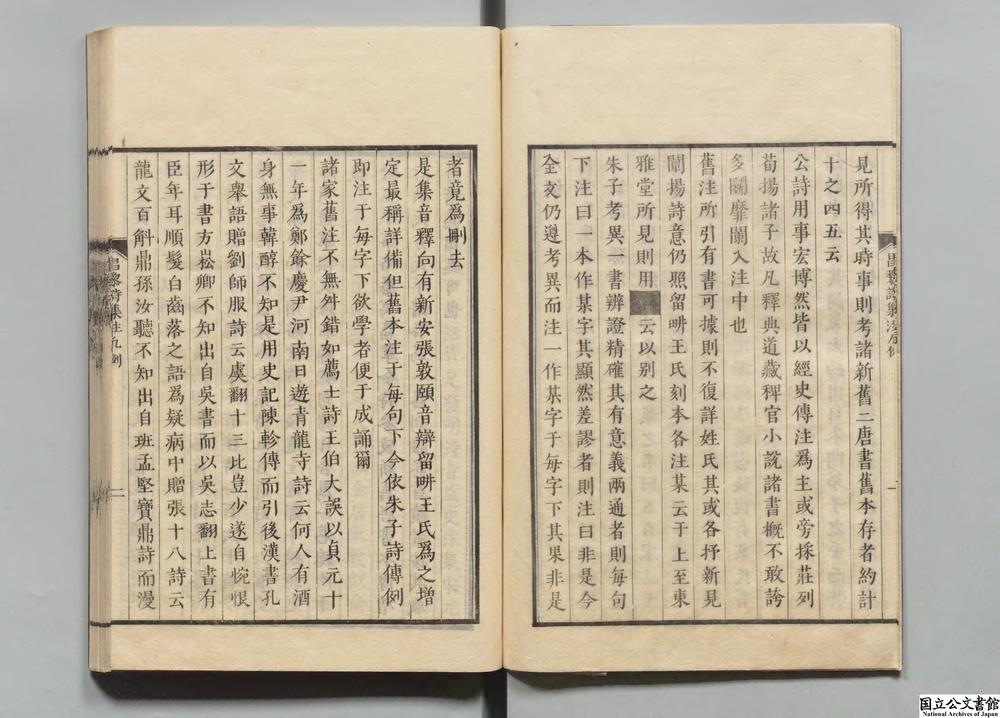 見所得其時事則考諸新舊二唐書舊本存者約計
十之四五云
公詩用事宏博然皆以經史傳注爲主或旁採莊列
荀揚諸子故凡釋典道藏稗官小說諸書概不敢誇
多鬬靡闌入注中也
舊注所引有書可據則不復詳姓氏其或各抒新見
闡揚詩意仍照留畊王氏刻本各注某云于上至東
雅堂所見則用云以别之
朱子考異一書辨證精確其有意義兩通者則每句
下注曰一本作某字其顯然差謬者則注曰非是今
全文仍遵考異而注一作某字于每字下其果非是
者竟爲刪去
是集音釋向有新安張敦頤音辯留畊王氏爲之增
定最稱詳備但舊本注于每句下今依朱子詩傳例
即注于每字下欲學者便于成誦爾
諸家舊注不無舛錯如薦士詩王伯大誤以貞元十
一年爲鄭餘慶尹河南日遊青龍寺詩云何人有酒
身無事韓醇不知是用史記陳軫傳而引後漢書孔
文舉語贈劉師服詩云虞翻十三比豈少遂自惋恨
形于書方崧卿不知出自吳書而以吳志翻上書有
臣年耳順髮白齒落之語爲疑病中贈張十八詩云
龍文百斛鼎孫汝聽不知出自班孟堅寶鼎詩而漫
昌黎詩集注凡例
二
国立公文書館
National Archives of Japan